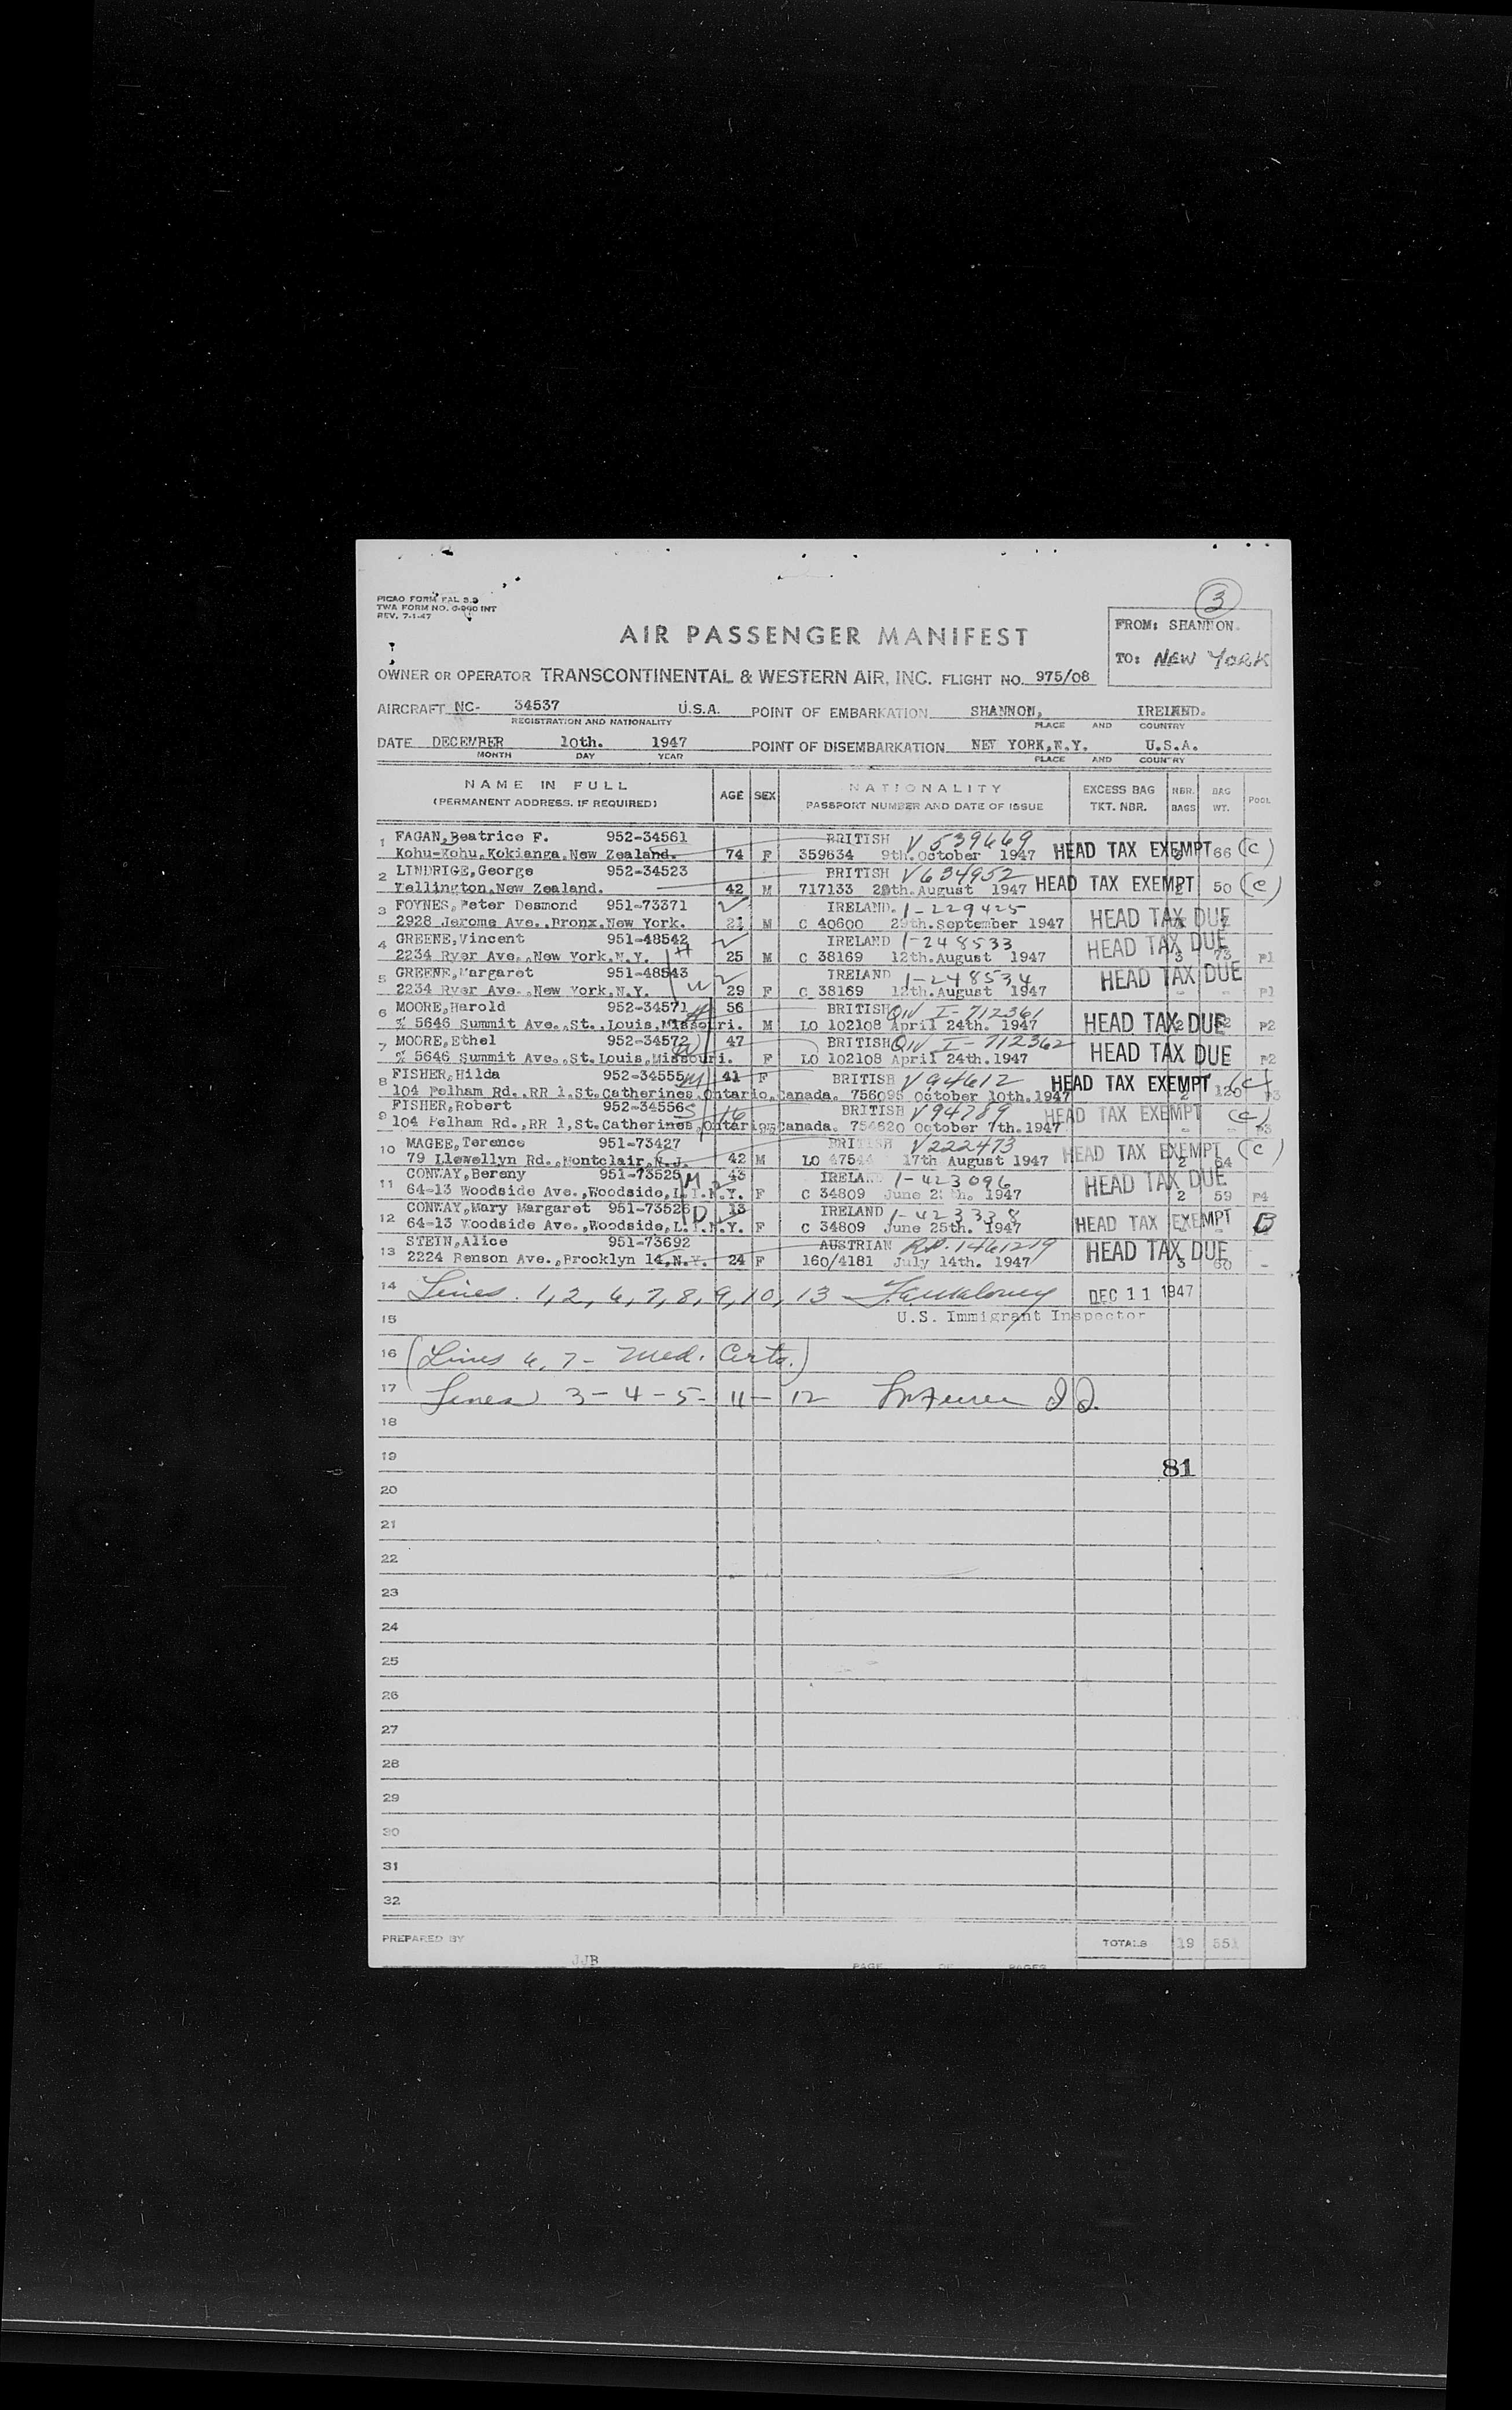 PICAO FORM FAL 3.9
TWA FORM NO. INT
REV. 7-1-47
3
AIR PASSENGER MANIFEST
FROM: SHANNON.
TO: NEW YORK
OWNER OR OPERATOR TRANSCONTINENTAL & WESTERN AIR, INC. FLIGHT NO. 975/08
AIRCRAFT NC- 34537 U.S.A. POINT OF EMBARKATION SHANNON, IRELAND.
REGISTRATION AND NATIONALITY PLACE AND COUNTRY
DATE DECEMBER 10th. 1947 POINT OF DISEMBARKATION NEW YORK,N.Y. U.S.A.
MONTH DAY YEAR PLACE AND COUNTRY
NAME IN FULL AGE SEX NATIONALITY EXCESS BAG NBR. BAG POOL
(PERMANENT ADDRESS, IF REQUIRED) PASSPORT NUMBER AND DATE OF ISSUE TKT. NBR. BAGS WT.
1 FAGAN,Beatrice F. 952-34561 BRITISH V 539669
Kohu-Kohu,Kokianga,New Zealand. 74 F 359634 9th.October 1947 HEAD TAX EXEMPT 66 (C)
2 LINDRIGE,George 952-34523 BRITISH V634952
Wellington,New Zealand. 42 M 717133 August 1947 HEAD TAX EXEMPT 50 (C)
3 FOYNES,Peter Desmond 951-73371 IRELAND. I-229425
2928 Jerome Ave.,Bronx,New York. M C 40600 September 1947 HEAD TAX DUE
4 GREENE,Vincent 951-48542 IRELAND I-248533
2234 Ryer Ave.,New York,N.Y. H 25 M C 38169 12th.August 1947 HEAD TAX DUE 3 73 P1
5 GREENE,Margaret 951-48543 IRELAND I-248534
2234 Ryer Ave.,New York,N.Y. W 29 F C 38169 12th.August 1947 HEAD TAX DUE - - P1
6 MOORE,Harold 952-34571 H 56 BRITISH QIV I-712361
% 5646 Summit Ave.,St.,Louis,Missouri. M LO 102108 April 24th. 1947 HEAD TAX DUE 2 P2
7 MOORE,Ethel 952-34572 W 47 BRITISH QIV I-712362
% 5646 Summit Ave.,St.Louis,Missouri. F LO 102108 April 24th.1947 HEAD TAX DUE P2
8 FISHER,Hilda 952-34555 M 41 F BRITISH V94612 HEAD TAX EXEMPT (C)
104 Pelham Rd.,RR 1,St.Catherines,Ontario,Canada. 756095 October 10th.1947 2 120 P3
9 FISHER,Robert 952-34556 S 16 BRITISH V94789 HEAD TAX EXEMPT (C)
104 Pelham Rd.,RR 1,St.Catherines,Ontario,Canada. 754620 October 7th.1947 - - P3
10 MAGEE,Terence 951-73427 BRITISH V222473
79 Llewellyn Rd.,Montclair,N.J. 42 M LO 17th August 1947 HEAD TAX EXEMPT 2 64 (C)
11 CONWAY,Bereny 951-73525 M 43 IRELAND I-423096
64-13 Woodside Ave.,Woodside,L.I.N.Y. F C 34809 June 1947 HEAD TAX DUE 2 59 P4
12 CONWAY,Mary Margaret 951-73526 D 13 IRELAND I-423338
64-13 Woodside Ave.,Woodside,L.I.N.Y. F C 34809 June 25th. 1947 HEAD TAX EXEMPT B
13 STEIN,Alice 951-73692 AUSTRIAN R.P. 1461219
2224 Benson Ave.,Brooklyn 14,N.Y. 24 F 160/4181 July 14th. 1947 HEAD TAX DUE 3 60 -
14 Lines. 1, 2, 6, 7, 8, 9, 10, 13 DEC 11 1947
15 U.S. Immigrant Inspector
16 (Lines 6, 7 - Med. Certs.)
17 Lines 3 - 4 - 5 - 11 - 12
18
19 81
20
21
22
23
24
25
26
27
28
29
30
31
32
PREPARED BY JJB TOTALS 19 551
PAGE OF PAGES